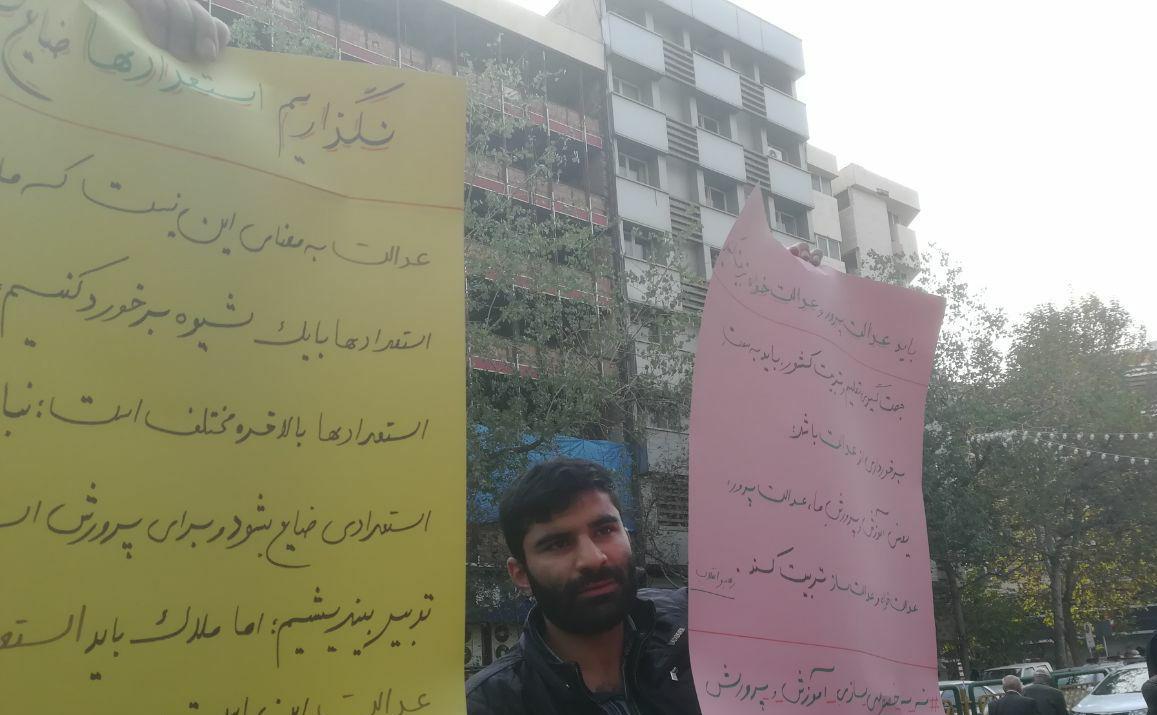 نگذاریم استعدادها ضایع
عدالت به معنای این نیست که ما
استعدادها با یک شیوه برخورد کنیم؛
استعدادها بالاخره مختلف است؛ نبا
استعدادی ضایع بشود و برای پرورش اس
تدبیر بیندیشیم؛ اما ملاک باید استعد
عدالت این است
باید عدالت پرور و عدالت خواه
جهت گیری تعلیم و تربیت کشور، باید به سمت
برخورداری از عدالت باشد؛
یعنی آموزش و پرورش ما، عدالت پرور،
عدالت خواه و عدالت ساز تربیت کند
رهبر انقلاب
#نه_به_خصوصی_سازی_آموزش_و_پرورش